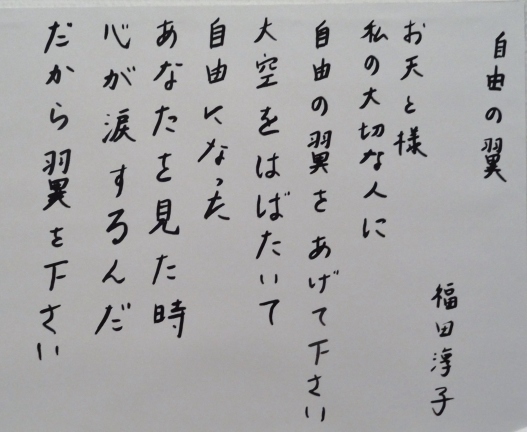 自由の翼
福田淳子
お天と様
私の大切な人に
自由の翼をあげて下さい
大空をはばたいて
自由になった
あなたを見た時
心が涙するんだ
だから翼を下さい